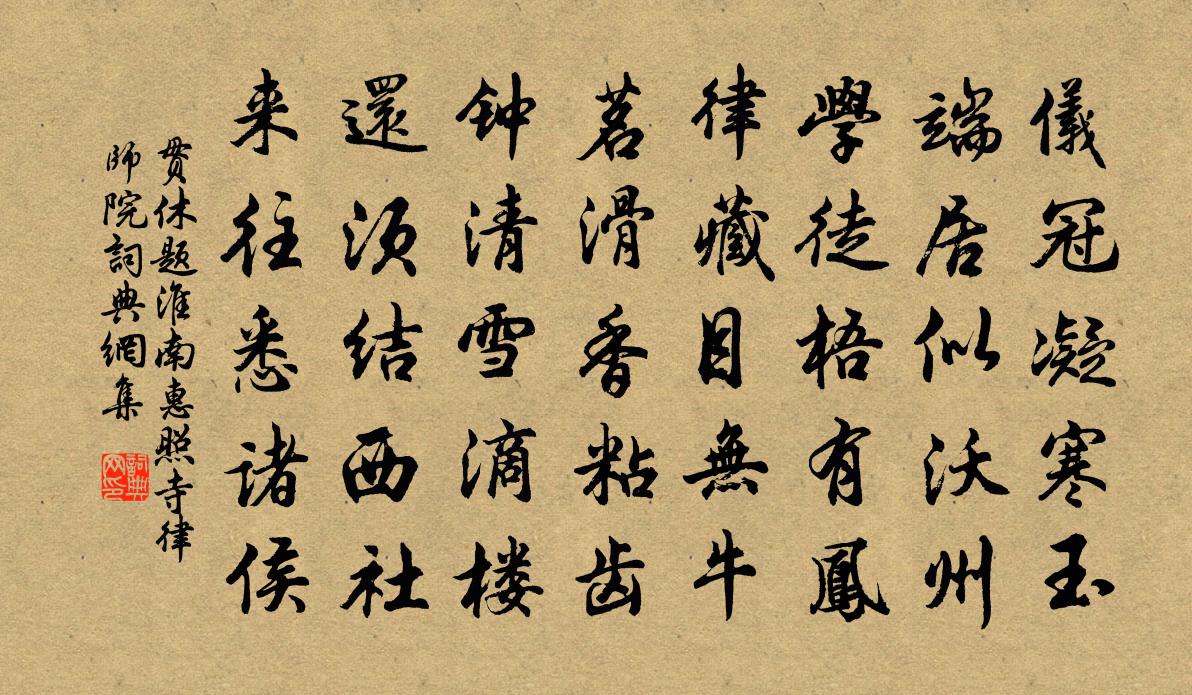 儀冠凝寒玉
端居似沃州
學徒梧有鳳
律藏目無牛
茗滑香粘齿
钟清雪滴楼
還须结西社
来往悉諸侯
贯休题淮南惠照寺律
師院詞典網集
詞典
网印